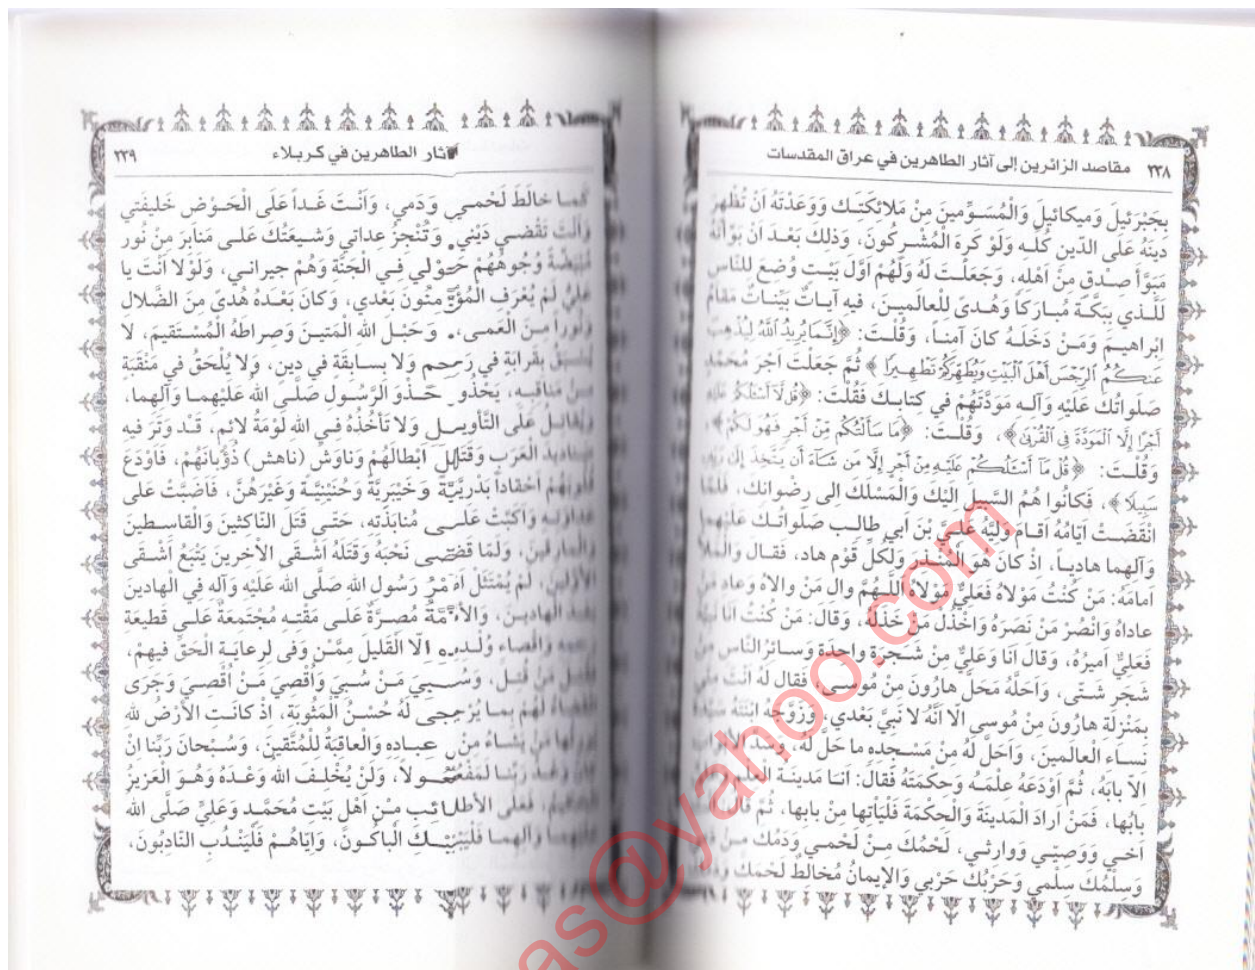 ٢٣٨ مقاصد الزائرين إلى آثار الطاهرين في عراق المقدسات
بِجَبْرَئيلَ وَميكائيلَ وَالْمُسَوِّمينَ مِنْ مَلائِكَتِكَ وَوَعَدْتَهُ اَنْ تُظْهِرَ
دينَهُ عَلَى الدّينِ كُلِّهِ وَلَوْ كَرِهَ الْمُشْرِكُونَ، وَذلِكَ بَعْدَ اَنْ بَوَّأتَهُ
مُبَوَّأَ صِدْقٍ مِنْ اَهْلِهِ، وَجَعَلْتَ لَهُ وَلَهُمْ اَوَّلَ بَيْتٍ وُضِعَ لِلنّاسِ
لَلَّذي بِبَكَّةَ مُبارَكاً وَهُدىً لِلْعالَمينَ، فيهِ آياتٌ بَيِّناتٌ مَقامُ
اِبْراهيمَ وَمَنْ دَخَلَهُ كانَ آمِناً، وَقُلْتَ: ﴿إِنَّمَا يُرِيدُ اللَّهُ لِيُذْهِبَ
عَنكُمُ الرِّجْسَ أَهْلَ الْبَيْتِ وَيُطَهِّرَكُمْ تَطْهِيرًا﴾ ثُمَّ جَعَلْتَ اَجْرَ مُحَمَّدٍ
صَلَواتُكَ عَلَيْهِ وَآلِهِ مَوَدَّتَهُمْ في كِتابِكَ فَقُلْتَ: ﴿قُل لَّا أَسْئَلُكُمْ عَلَيْهِ
أَجْرًا إِلَّا الْمَوَدَّةَ فِي الْقُرْبَى﴾، وَقُلْتَ: ﴿مَا سَأَلْتُكُم مِّنْ أَجْرٍ فَهُوَ لَكُمْ﴾،
وَقُلْتَ: ﴿قُلْ مَا أَسْئَلُكُمْ عَلَيْهِ مِنْ أَجْرٍ إِلَّا مَن شَاءَ أَن يَتَّخِذَ إِلَى رَبِّهِ
سَبِيلًا﴾، فَكانُوا هُمُ السَّبيلَ اِلَيْكَ وَالْمَسْلَكَ اِلى رِضْوانِكَ، فَلَمَّا
انْقَضَتْ اَيّامُهُ اَقامَ وَلِيَّهُ عَلِيَّ بْنَ اَبي طالِبٍ صَلَواتُكَ عَلَيْهِما
وَآلِهِما هادِياً، اِذْ كانَ هُوَ الْمُنْذِرَ وَلِكُلِّ قَوْمٍ هادٍ، فَقالَ وَالْمَلَأُ
اَمامَهُ: مَنْ كُنْتُ مَوْلاهُ فَعَلِيٌّ مَوْلاهُ اَللّهُمَّ والِ مَنْ والاهُ وَعادِ مَنْ
عاداهُ وَانْصُرْ مَنْ نَصَرَهُ وَاخْذُلْ مَنْ خَذَلَهُ، وَقالَ: مَنْ كُنْتُ اَنَا نَبِيَّهُ
فَعَلِيٌّ اَميرُهُ، وَقالَ اَنَا وَعَلِيٌّ مِنْ شَجَرَةٍ واحِدَةٍ وَسائِرُ النّاسِ مِنْ
شَجَرٍ شَتّى، وَاَحَلَّهُ مَحَلَّ هارُونَ مِنْ مُوسى، فَقالَ لَهُ اَنْتَ مِنّي
بِمَنْزِلَةِ هارُونَ مِنْ مُوسى اِلّا اَنَّهُ لا نَبِيَّ بَعْدي، وَزَوَّجَهُ ابْنَتَهُ سَيِّدَةَ
نِساءِ الْعالَمينَ، وَاَحَلَّ لَهُ مِنْ مَسْجِدِهِ ما حَلَّ لَهُ، وَسَدَّ الْاَبْوابَ
اِلّا بابَهُ، ثُمَّ اَوْدَعَهُ عِلْمَهُ وَحِكْمَتَهُ فَقالَ: اَنَا مَدينَةُ الْعِلْمِ
بابُها، فَمَنْ اَرادَ الْمَدينَةَ وَالْحِكْمَةَ فَلْيَأتِها مِنْ بابِها، ثُمَّ قالَ: اَنْتَ
اَخي وَوَصِيّي وَوارِثي، لَحْمُكَ مِنْ لَحْمي وَدَمُكَ مِنْ
وَسِلْمُكَ سِلْمي وَحَرْبُكَ حَرْبي وَالْإيمانُ مُخالِطٌ لَحْمَكَ وَدَمَكَ
آثار الطاهرين في كربلاء ٢٣٩
كَما خالَطَ لَحْمي وَدَمي، وَاَنْتَ غَداً عَلَى الْحَوْضِ خَليفَتي
وَاَنْتَ تَقْضي دَيْني وَتُنْجِزُ عِداتي وَشيعَتُكَ عَلى مَنابِرَ مِنْ نُورٍ
مُبْيَضَّةً وُجُوهُهُمْ حَوْلي فِي الْجَنَّةِ وَهُمْ جيراني، وَلَوْلا اَنْتَ يا
عَلِيُّ لَمْ يُعْرَفِ الْمُؤْمِنُونَ بَعْدي، وَكانَ بَعْدَهُ هُدىً مِنَ الضَّلالِ
وَنُوراً مِنَ الْعَمى، وَحَبْلَ اللهِ الْمَتينَ وَصِراطَهُ الْمُسْتَقيمَ، لا
يُسْبَقُ بِقَرابَةٍ في رَحِمٍ وَلا بِسابِقَةٍ في دينٍ، وَلا يُلْحَقُ في مَنْقَبَةٍ
مِنْ مَناقِبِهِ، يَحْذُو حَذْوَ الرَّسُولِ صَلَّى اللهُ عَلَيْهِما وَآلِهِما،
وَيُقاتِلُ عَلَى التَّأويلِ وَلا تَأخُذُهُ فِي اللهِ لَوْمَةُ لائِمٍ، قَدْ وَتَرَ فيهِ
صَناديدَ الْعَرَبِ وَقَتَلَ اَبْطالَهُمْ وَناوَشَ (ناهش) ذُؤْبانَهُمْ، فَاَوْدَعَ
قُلُوبَهُمْ اَحْقاداً بَدْرِيَّةً وَخَيْبَرِيَّةً وَحُنَيْنِيَّةً وَغَيْرَهُنَّ، فَاَضَبَّتْ عَلى
عَداوَتِهِ وَاَكَبَّتْ عَلى مُنابَذَتِهِ، حَتّى قَتَلَ النّاكِثينَ وَالْقاسِطينَ
وَالْمارِقينَ، وَلَمّا قَضى نَحْبَهُ وَقَتَلَهُ اَشْقَى الْآخِرينَ يَتْبَعُ اَشْقَى
الْاَوَّلينَ، لَمْ يُمْتَثَلْ اَمْرُ رَسُولِ اللهِ صَلَّى اللهُ عَلَيْهِ وَآلِهِ فِي الْهادينَ
بَعْدَ الْهادينَ، وَالْاُمَّةُ مُصِرَّةٌ عَلى مَقْتِهِ مُجْتَمِعَةٌ عَلى قَطيعَةِ
رَحِمِهِ وَاِقْصاءِ وُلْدِهِ اِلَّا الْقَليلَ مِمَّنْ وَفى لِرِعايَةِ الْحَقِّ فيهِمْ،
فَقُتِلَ مَنْ قُتِلَ، وَسُبِيَ مَنْ سُبِيَ وَاُقْصِيَ مَنْ اُقْصِيَ وَجَرَى
الْقَضاءُ لَهُمْ بِما يُرْجى لَهُ حُسْنُ الْمَثُوبَةِ، اِذْ كانَتِ الْاَرْضُ للهِ
يُورِثُها مَنْ يَشاءُ مِنْ عِبادِهِ وَالْعاقِبَةُ لِلْمُتَّقينَ، وَسُبْحانَ رَبِّنا اِنْ
كانَ وَعْدُ رَبِّنا لَمَفْعُولاً، وَلَنْ يُخْلِفَ اللهُ وَعْدَهُ وَهُوَ الْعَزيزُ
الْحَكيمُ، فَعَلَى الْاَطائِبِ مِنْ اَهْلِ بَيْتِ مُحَمَّدٍ وَعَلِيٍّ صَلَّى اللهُ
عَلَيْهِما وَآلِهِما فَلْيَبْكِ الْباكُونَ، وَاِيّاهُمْ فَلْيَنْدُبِ النّادِبُونَ،
as@yahoo.com